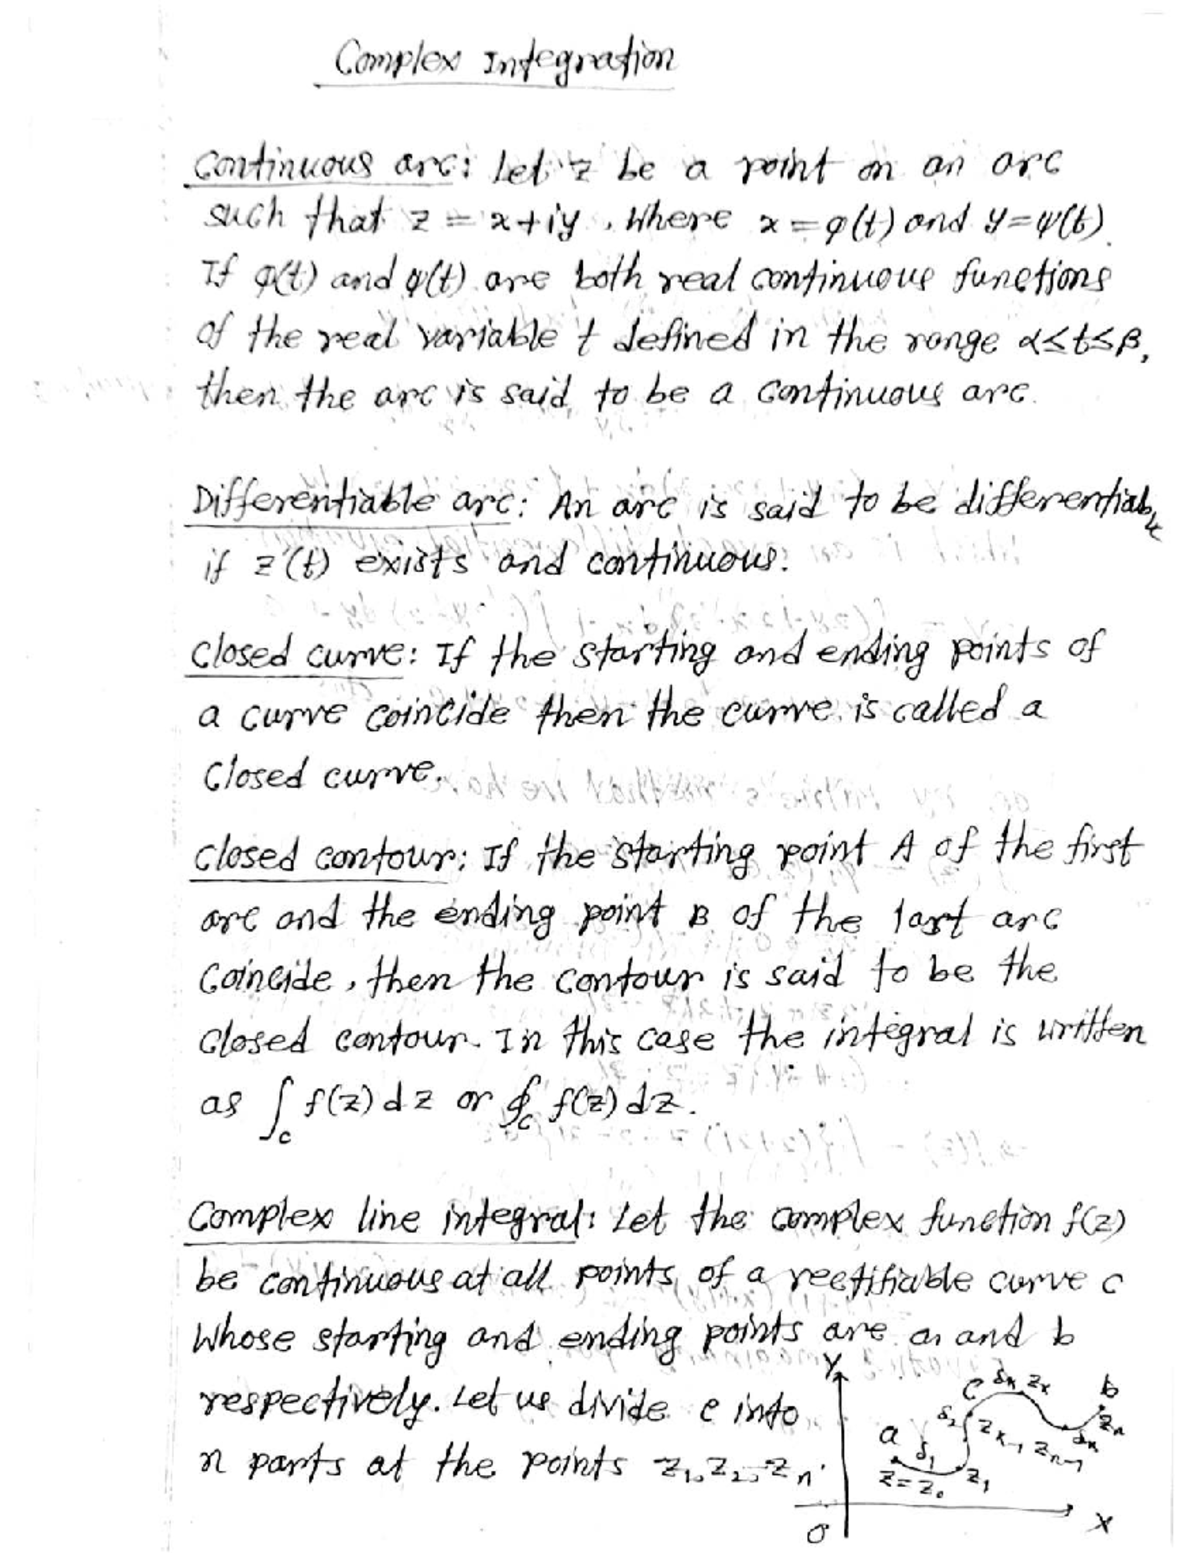 Complex Integration
Continuous arc: Let z be a point on an arc
such that z = x+iy, Where x = φ(t) and y=ψ(t).
If φ(t) and ψ(t) are both real continuous functions
of the real variable t defined in the range α≤t≤β,
then the arc is said to be a continuous arc.
Differentiable arc: An arc is said to be differentiable
if z'(t) exists and continuous.
Closed curve: If the starting and ending points of
a curve coincide then the curve is called a
closed curve.
Closed contour: If the starting point A of the first
arc and the ending point B of the last arc
coincide, then the contour is said to be the
closed contour. In this case the integral is written
as ∫_c f(z) dz or ∮_c f(z) dz.
Complex line integral: Let the complex function f(z)
be continuous at all points of a rectifiable curve c
Whose starting and ending points are a and b
respectively. Let us divide c into
n parts at the points z₁, z₂, --- zₙ.
Y
C δₖ zₖ b
a δ₁ δ₂ zₖ₋₁ zₙ₋₁ δₙ zₙ
z = z₀ z₁
O X